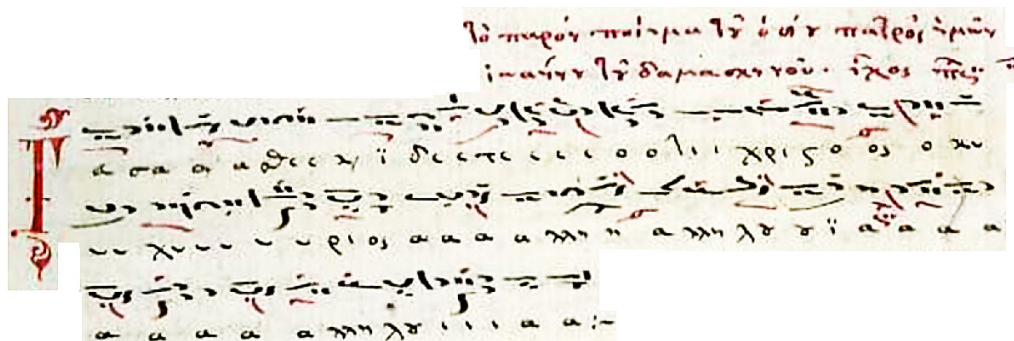 τὸ παρὸν ποίημα τοῦ ὁσίου πατρὸς ἡμῶν
ἰωάννου τοῦ δαμασκηνοῦ. ἦχος
σα α α σθε ε ϗ ϊ δε ε τε ε ε ε ο ο τι ι χριϛο ο ος ο κυ
υ υ χυ υ υ υ υ ριος α α α α λλη η α λλη λȣ ȣ ϊ α α α α
α α α α α λλη λȣ ι ι ι α α :~